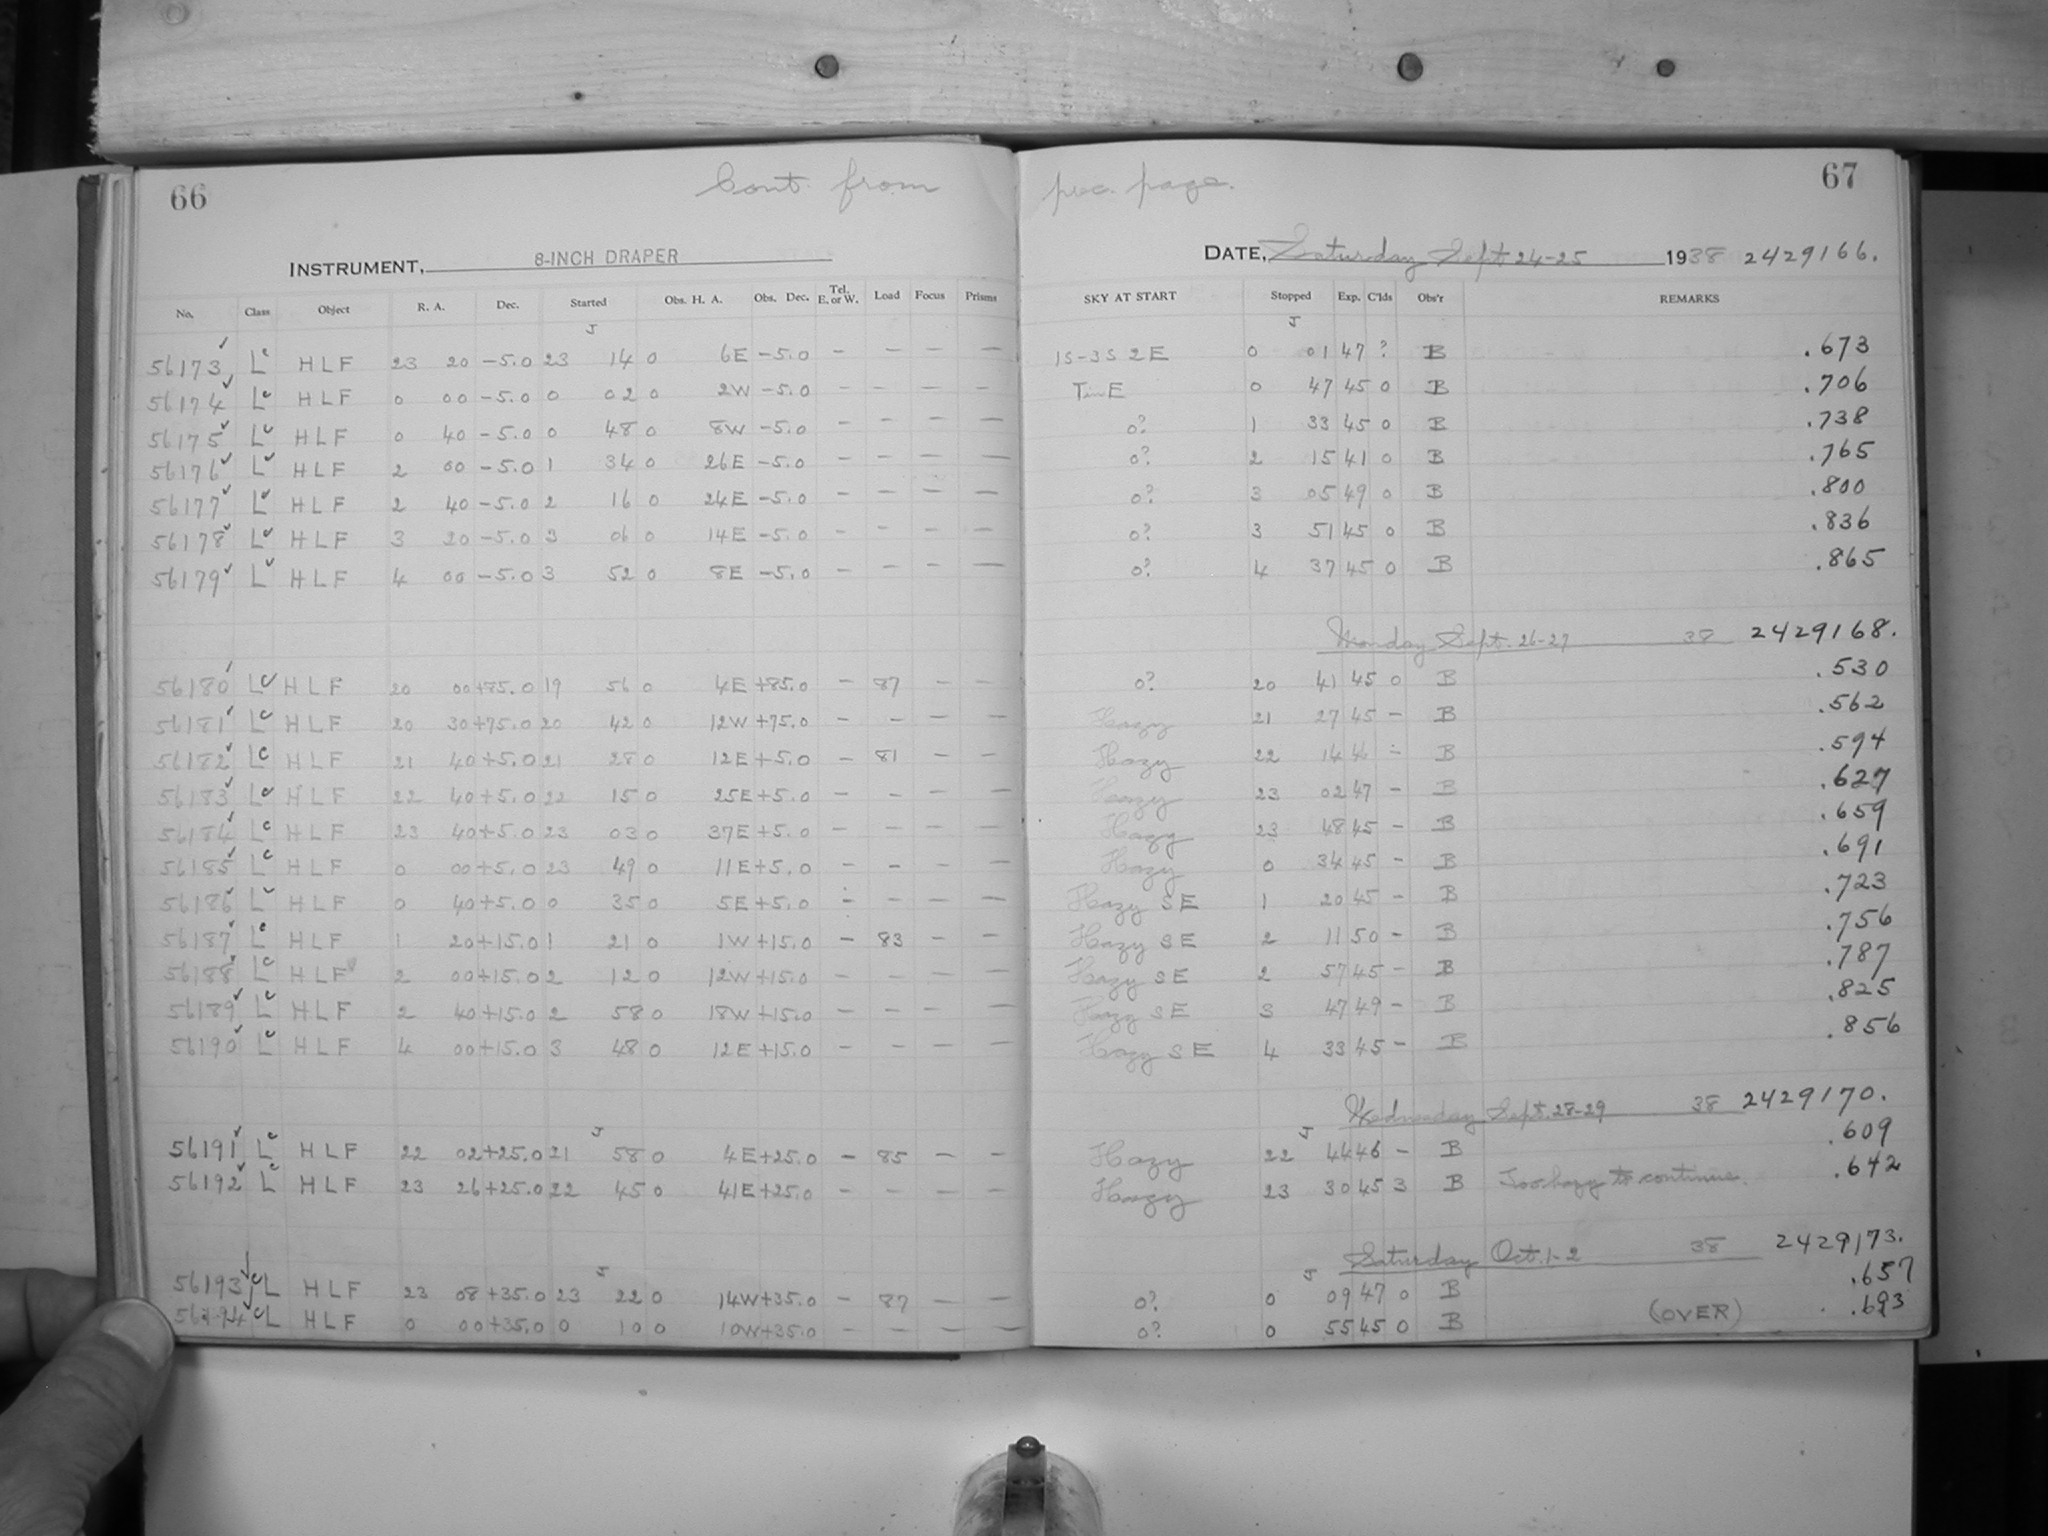 66 Cont. from prec. page. 67
INSTRUMENT, 8-INCH DRAPER DATE, Saturday Sept 24-25 1938 2429166.
No. Class Object R. A. Dec. Started Obs. H. A. Obs. Dec. Tel. E. or W. Load Focus Prisms SKY AT START Stopped Exp. C'lds Obs'r REMARKS
J J
56173 L c H L F 23 20 -5.0 23 14 0 6E -5.0 - - - - 1S-3S 2E 0 01 47 ? B .673
56174 L c H L F 0 00 -5.0 0 02 0 2W -5.0 - - - - 0 47 45 0 B .706
56175 L c H L F 0 40 -5.0 0 48 0 8W -5.0 - - - - 0? 1 33 45 0 B .738
56176 L c H L F 2 00 -5.0 1 34 0 26E -5.0 - - - - 0? 2 15 41 0 B .765
56177 L c H L F 2 40 -5.0 2 16 0 24E -5.0 - - - - 0? 3 05 49 0 B .800
56178 L c H L F 3 20 -5.0 3 06 0 14E -5.0 - - - - 0? 3 51 45 0 B .836
56179 L c H L F 4 00 -5.0 3 52 0 8E -5.0 - - - - 0? 4 37 45 0 B .865
Monday Sept. 26-27 38 2429168.
56180 L c H L F 20 00 +85.0 19 56 0 4E +85.0 - 87 - - 0? 20 41 45 0 B .530
56181 L c H L F 20 30 +75.0 20 42 0 12W +75.0 - - - - Hazy 21 27 45 - B .562
56182 L c H L F 21 40 +5.0 21 28 0 12E +5.0 - 81 - - Hazy 22 14 46 - B .594
56183 L c H L F 22 40 +5.0 22 15 0 25E +5.0 - - - - Hazy 23 02 47 - B .627
56184 L c H L F 23 40 +5.0 23 03 0 37E +5.0 - - - - Hazy 23 48 45 - B .659
56185 L c H L F 0 00 +5.0 23 49 0 11E +5.0 - - - - Hazy 0 34 45 - B .691
56186 L c H L F 0 40 +5.0 0 35 0 5E +5.0 - - - - Hazy S E 1 20 45 - B .723
56187 L c H L F 1 20 +15.0 1 21 0 1W +15.0 - 83 - - Hazy S E 2 11 50 - B .756
56188 L c H L F 2 00 +15.0 2 12 0 12W +15.0 - - - - Hazy S E 2 57 45 - B .787
56189 L c H L F 2 40 +15.0 2 58 0 18W +15.0 - - - - Hazy S E 3 47 49 - B .825
56190 L c H L F 4 00 +15.0 3 48 0 12E +15.0 - - - - Hazy S E 4 33 45 - B .856
Wednesday Sept. 28-29 38 2429170.
J J
56191 L c H L F 22 02 +25.0 21 58 0 4E +25.0 - 85 - - Hazy 22 44 46 - B .609
56192 L c H L F 23 26 +25.0 22 45 0 41E +25.0 - - - - Hazy 23 30 45 3 B Too hazy to continue. .642
Saturday Oct. 1-2 38 2429173.
J J
56193 c L H L F 23 08 +35.0 23 22 0 14W +35.0 - 87 - - 0? 0 09 47 0 B .657
56194 c L H L F 0 00 +35.0 0 10 0 10W +35.0 - - - - 0? 0 55 45 0 B (OVER) .693